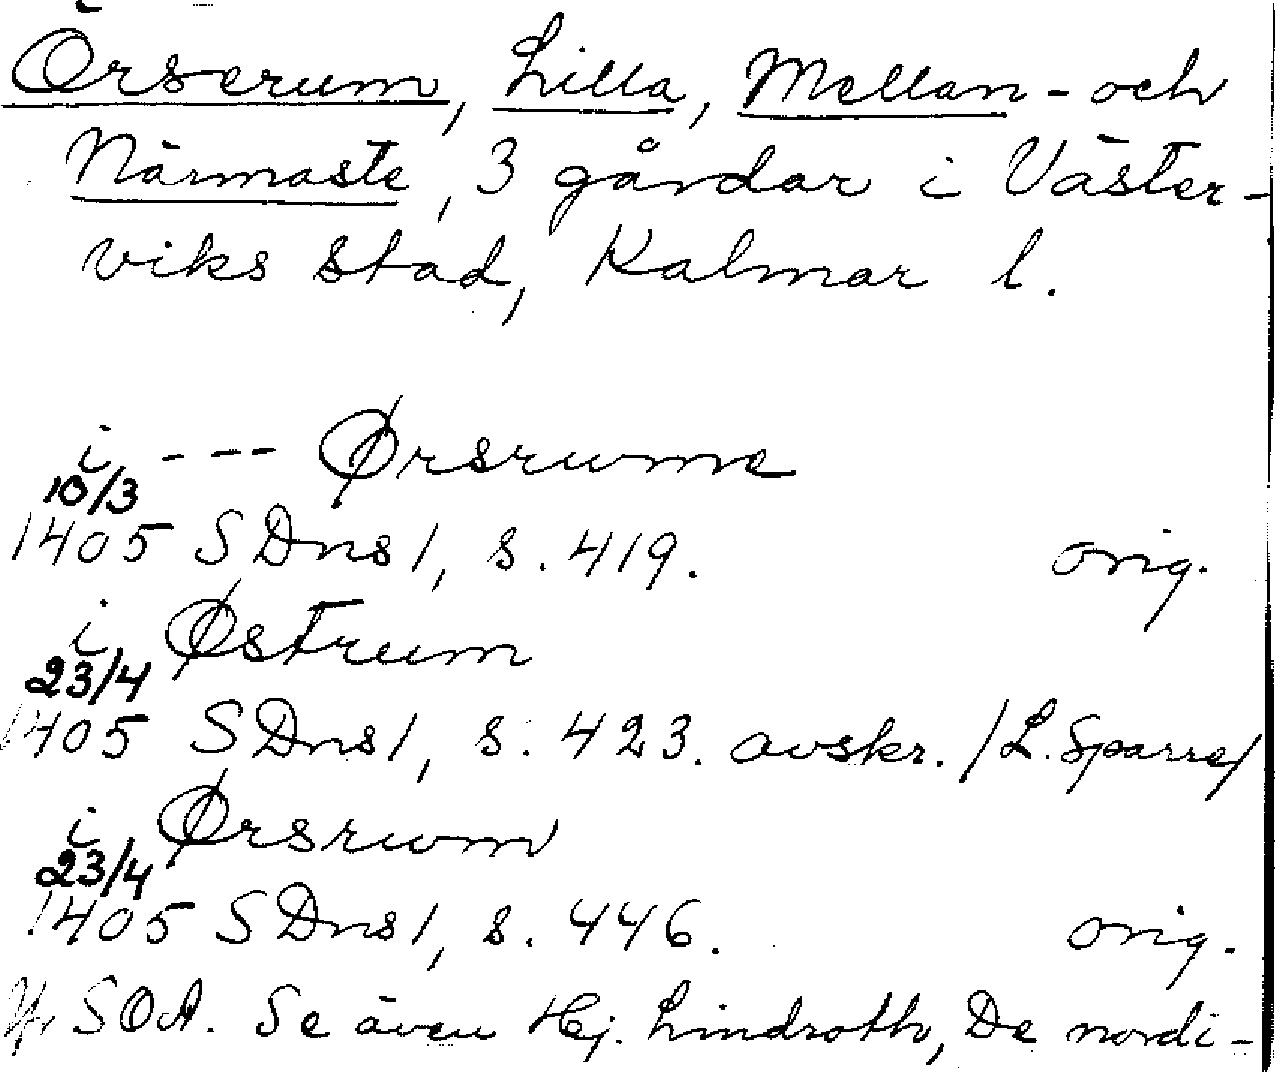 Örserum, Lilla, Mellan- och
Närmaste, 3 gårdar i Väster-
viks stad, Kalmar l.
i --- Ørsrwme
10/3
1405 SDns1, s. 419. orig.
i Østrum
23/4
1405 SDns1, s. 423. avskr. /L. Sparre/
i Ørsrwm
23/4
1405 SDns1, s. 446. orig.
SOA. Se även Hj. Lindroth, De nordi-